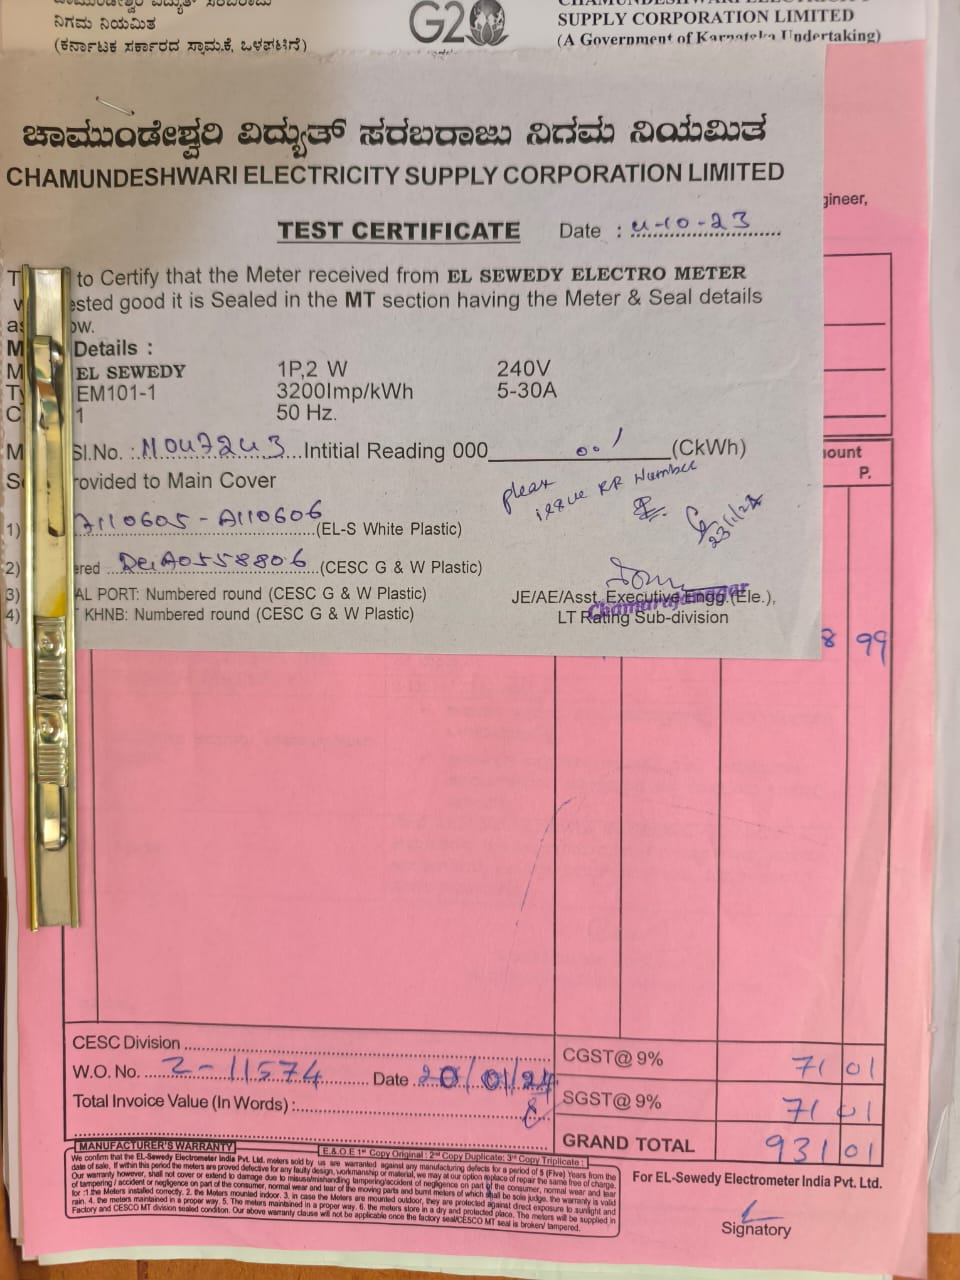 ನಿಗಮ ನಿಯಮಿತ
(ಕರ್ನಾಟಕ ಸರ್ಕಾರದ ಸ್ವಾಮ್ಯಕ್ಕೆ ಒಳಪಟ್ಟಿದೆ)
G20
SUPPLY CORPORATION LIMITED
(A Government of Karnataka Undertaking)
gineer,
ಚಾಮುಂಡೇಶ್ವರಿ ವಿದ್ಯುತ್ ಸರಬರಾಜು ನಿಗಮ ನಿಯಮಿತ
CHAMUNDESHWARI ELECTRICITY SUPPLY CORPORATION LIMITED
TEST CERTIFICATE Date : 4-10-23
to Certify that the Meter received from EL SEWEDY ELECTRO METER
ested good it is Sealed in the MT section having the Meter & Seal details
ow.
Details :
EL SEWEDY 1P,2 W 240V
EM101-1 3200Imp/kWh 5-30A
1 50 Hz.
Sl.No. : N047243 Intitial Reading 000 001 (CkWh)
rovided to Main Cover
please issue RR Number
23/1/24
1) A110605 - A110606 (EL-S White Plastic)
2) ered A0558806 (CESC G & W Plastic)
3) AL PORT: Numbered round (CESC G & W Plastic)
4) KHNB: Numbered round (CESC G & W Plastic)
JE/AE/Asst. Executive Engg.(Ele.),
Chamarajanagar
LT Rating Sub-division
ount
P.
8 99
CESC Division
W.O. No. 2-11574 Date 20/01/24
Total Invoice Value (In Words) :
CGST@ 9% 71 01
SGST@ 9% 71 01
GRAND TOTAL 931 01
MANUFACTURER'S WARRANTY
E.& O.E 1st Copy Original : 2nd Copy Duplicate: 3rd Copy Triplicate :
We confirm that the EL-Sewedy Electrometer India Pvt. Ltd. meters sold by us are warranted against any manufacturing defects for a period of 5 (Five) Years from the
date of sale. If within this period the meters are proved defective for any faulty design, workmanship or material, we may at our option replace of repair the same free of charge.
Our warranty however, shall not cover or extend to damage due to misuse/mishandling tampering/accident of negligence on part of the consumer, normal wear and tear
rain. 4. the meters maintained in a proper way. 5. The meters maintained in a proper way. 6. the meters store in a dry and protected place. The meters will be supplied in
Factory and CESCO MT division sealed condition. Our above warranty clause will not be applicable once the factory seal/CESCO MT seal is broken/ tampered.
For EL-Sewedy Electrometer India Pvt. Ltd.
Signatory